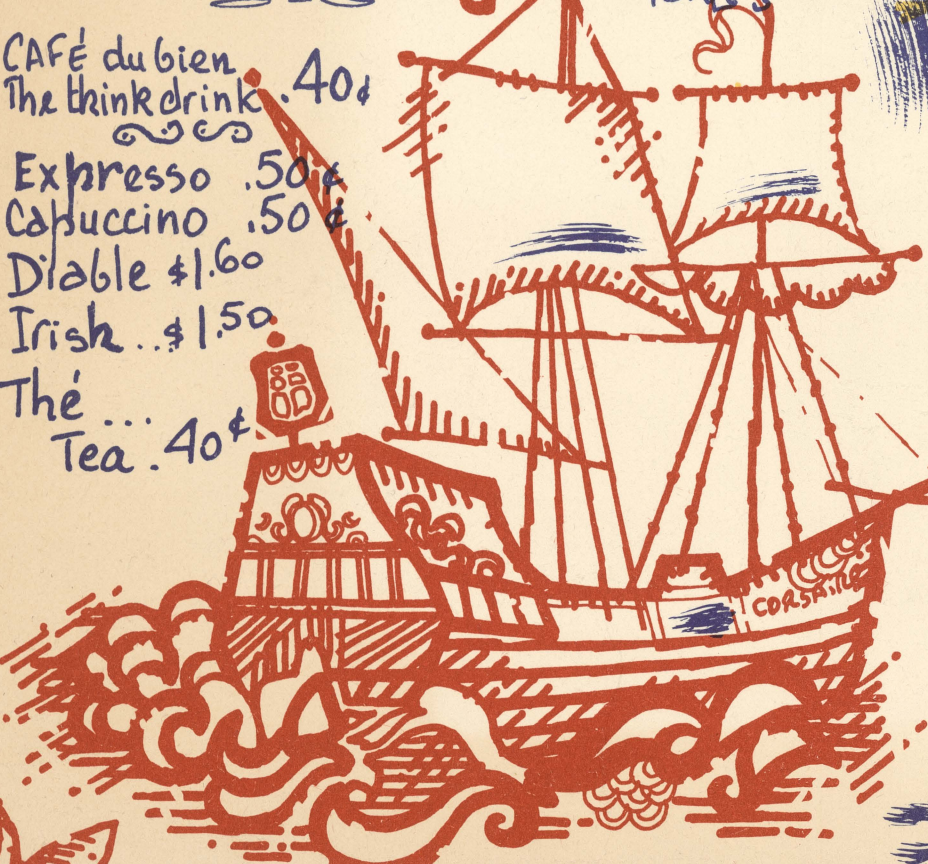 CAFÉ du bien
The think drink .40¢
Expresso .50¢
Capuccino .50¢
Diable $1.60
Irish .. $1.50
Thé ...
Tea .40¢
CORSAIRE